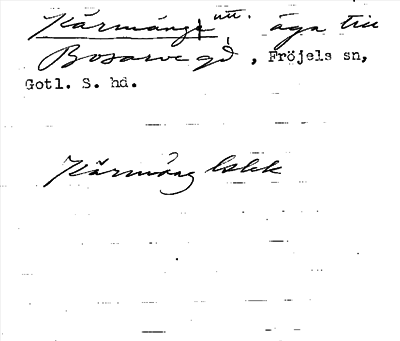 Kärmänge utt. äga till
Bosarve gd, Fröjels sn,
Gotl. S. hd.
Kärmäng lskk